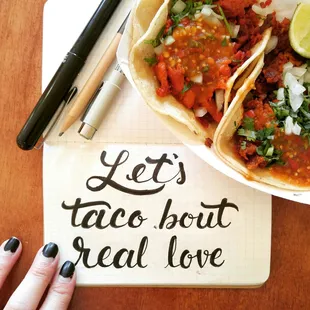 Let's
taco bout
real love